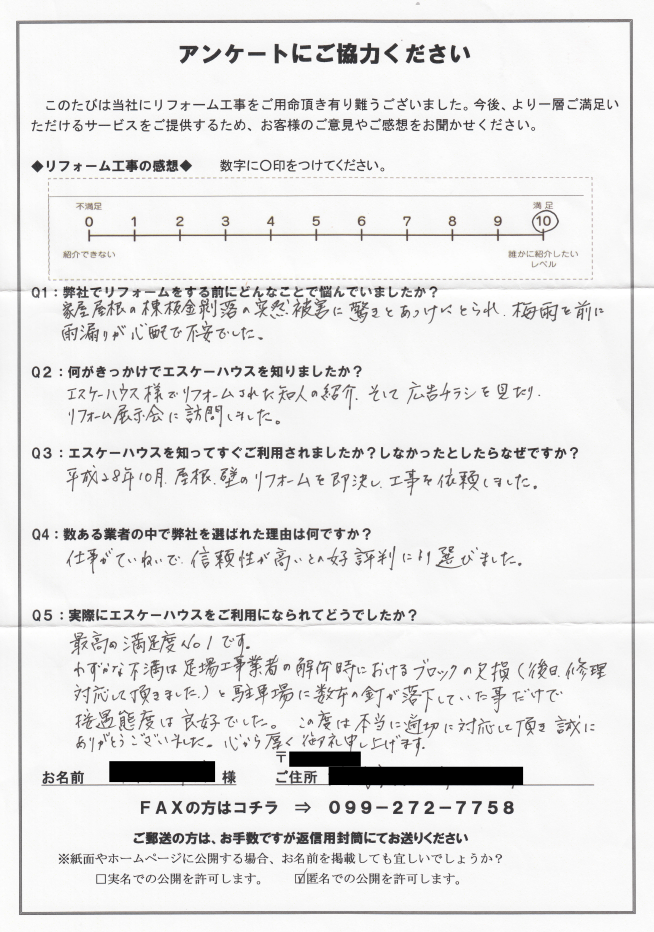 アンケートにご協力ください
このたびは当社にリフォーム工事をご用命頂き有り難うございました。今後、より一層ご満足い
ただけるサービスをご提供するため、お客様のご意見やご感想をお聞かせください。
◆リフォーム工事の感想◆　　数字に〇印をつけてください。
不満足　満足
0 1 2 3 4 5 6 7 8 9 10
紹介できない　誰かに紹介したい
レベル
Q1：弊社でリフォームをする前にどんなことで悩んでいましたか？
家屋屋根の棟板金剥落の突然被害に驚きとあっけにとられ、梅雨を前に
雨漏りが心配で不安でした。
Q2：何がきっかけでエスケーハウスを知りましたか？
エスケーハウス様でリフォームされた知人の紹介、そして広告チラシを見たり、
リフォーム展示会に訪問しました。
Q3：エスケーハウスを知ってすぐご利用されましたか？しなかったとしたらなぜですか？
平成28年10月、屋根、壁のリフォームを即決し、工事を依頼しました。
Q4：数ある業者の中で弊社を選ばれた理由は何ですか？
仕事がていねいで、信頼性が高いとの好評判により選びました。
Q5：実際にエスケーハウスをご利用になられてどうでしたか？
最高の満足度No1です。
わずかな不満は足場工事業者の解体時におけるブロックの欠損（後日、修理
対応して頂きました）と駐車場に数本の釘が落下していた事だけで
接遇態度は良好でした。この度は本当に適切に対応して頂き誠に
ありがとうございました。心から厚く御礼申し上げます。
〒
お名前　様　ご住所
FAXの方はコチラ ⇒ 099-272-7758
ご郵送の方は、お手数ですが返信用封筒にてお送りください
※紙面やホームページに公開する場合、お名前を掲載しても宜しいでしょうか？
□実名での公開を許可します。　☑匿名での公開を許可します。